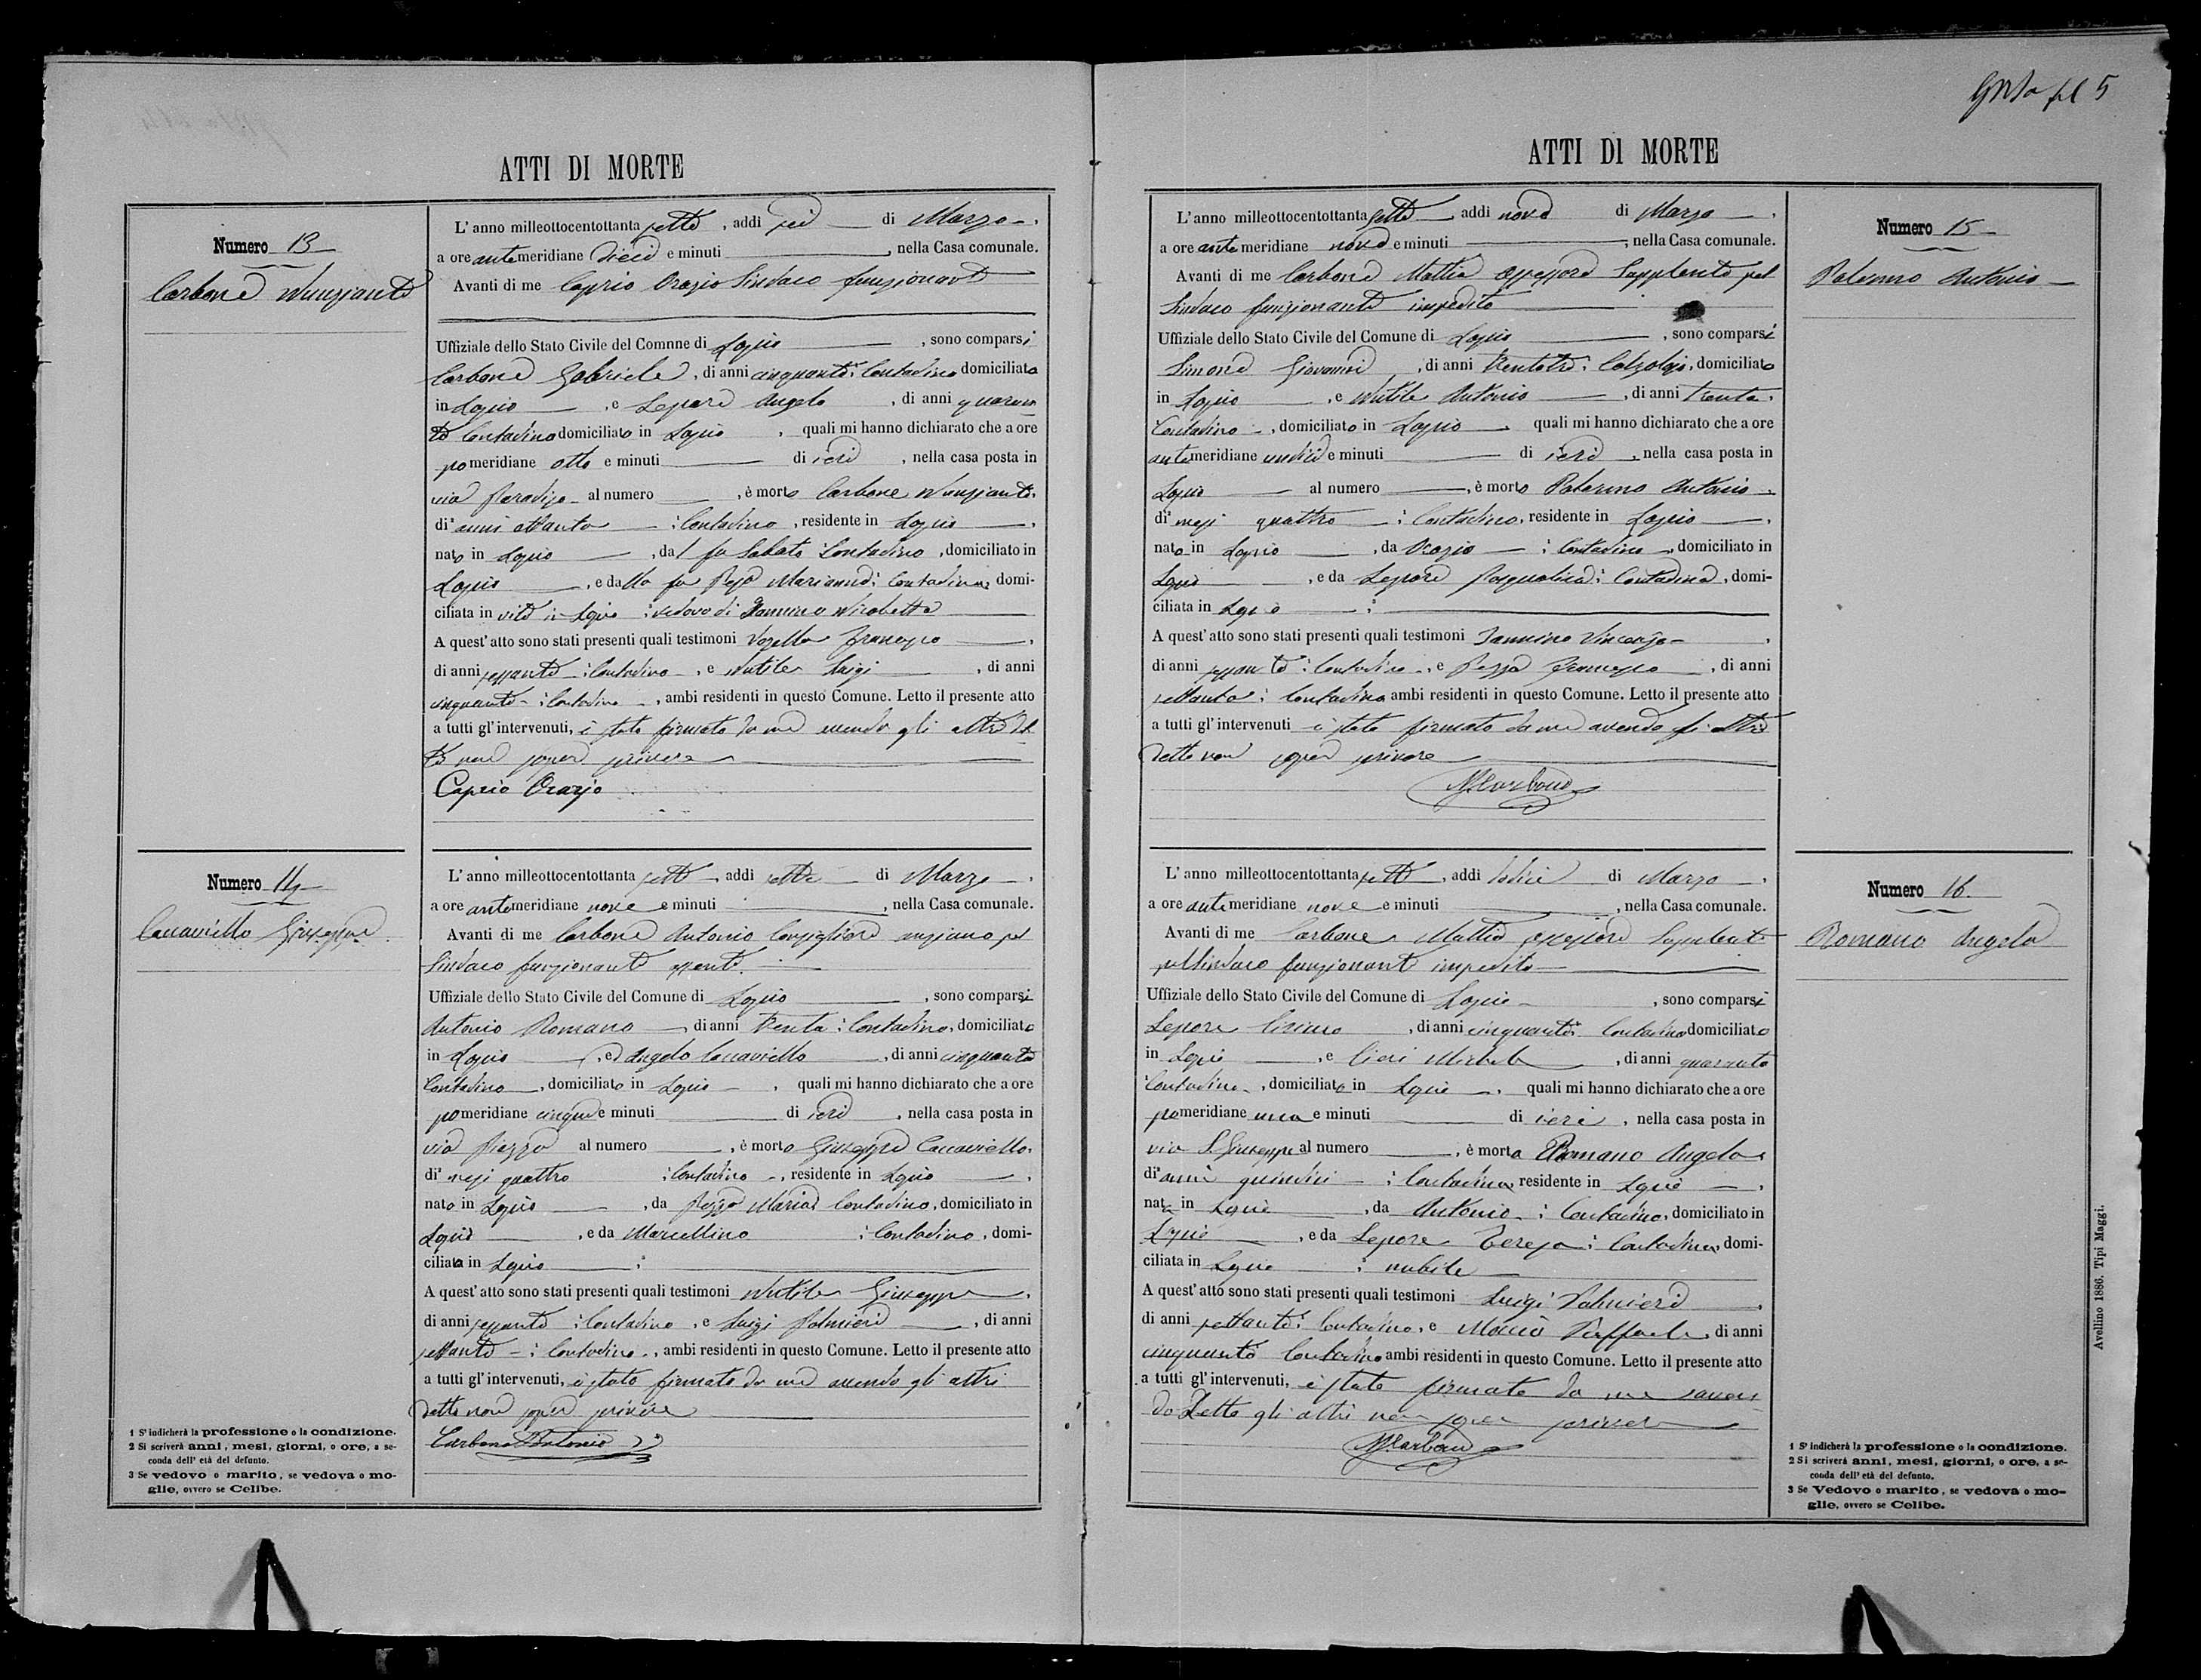 5
ATTI DI MORTE
Numero 13
Carbone Nunziante
L'anno milleottocentottanta sette, addi sei di Marzo,
a ore antemeridiane dieci e minuti, nella Casa comunale.
Avanti di me Caprio Orazio Sindaco funzionante
Uffiziale dello Stato Civile del Comnne di Lapio, sono comparsi
Carbone Gabriele, di anni cinquanta: Contadino domiciliato
in Lapio, e Lepore Angelo, di anni quaran
ta Contadino domiciliato in Lapio, quali mi hanno dichiarato che a ore
pomeridiane otto e minuti di ieri, nella casa posta in
via Paradiso al numero, è morto Carbone Nunziante,
di anni ottanta: Contadino, residente in Lapio,
nato in Lapio, dal fu Sabato: Contadino, domiciliato in
Lapio, e dalla fu Marianna: Contadina, domi-
ciliata in vita in Lapio: vedovo di Iannino Nicoletta
A quest'atto sono stati presenti quali testimoni Vozella Francesco,
di anni sessanta: Contadino, e Nutile Luigi, di anni
cinquanta: Contadino, ambi residenti in questo Comune. Letto il presente atto
a tutti gl'intervenuti, è stato firmato da me avendo gli altri det
to non saper scrivere
Caprio Orazio
Numero 14
Caccaviello Giuseppe
L'anno milleottocentottanta sette, addi sette di Marzo,
a ore antemeridiane nove e minuti, nella Casa comunale.
Avanti di me Carbone Antonio Consigliere anziano pel
Sindaco funzionante assente.
Uffiziale dello Stato Civile del Comune di Lapio, sono comparsi
Antonio Romano, di anni trenta: Contadino, domiciliato
in Lapio, ed Angelo Caccaviello, di anni cinquanta
Contadino, domiciliato in Lapio, quali mi hanno dichiarato che a ore
pomeridiane cinque e minuti di ieri, nella casa posta in
via Piazza al numero, è morto Giuseppe Caccaviello,
di mesi quattro: Contadino, residente in Lapio,
nato in Lapio, da Maria Contadino, domiciliato in
Lapio, e da Marcellino: Contadino, domi-
ciliata in Lapio:
A quest'atto sono stati presenti quali testimoni Nutile Giuseppe,
di anni sessanta: Contadino, e Luigi Palmieri, di anni
settanta: Contadino, ambi residenti in questo Comune. Letto il presente atto
a tutti gl'intervenuti, è stato firmato da me avendo gli altri
detto non saper scrivere
Carbone Antonio
1 S'indicherà la professione o la condizione.
2 Si scriverà anni, mesi, giorni, o ore, a se-
conda dell'età del defunto.
3 Se vedovo o marito, se vedova o mo-
glie, ovvero se Celibe.
ATTI DI MORTE
Numero 15
Palermo Antonio
L'anno milleottocentottanta sette, addi nove di Marzo,
a ore antemeridiane nove e minuti, nella Casa comunale.
Avanti di me Carbone Mattia assessore Supplente pel
Sindaco funzionante impedito
Uffiziale dello Stato Civile del Comune di Lapio, sono comparsi
Simone Giovanni, di anni trentatre: Calzolajo, domiciliato
in Lapio, e Nutile Antonio, di anni trenta:
Contadino, domiciliato in Lapio, quali mi hanno dichiarato che a ore
antemeridiane undici e minuti di ieri, nella casa posta in
Lapio al numero, è morto Palermo Antonio,
di mesi quattro: Contadino, residente in Lapio,
nato in Lapio, da Orazio: Contadino, domiciliato in
Lapio, e da Lepore Pasqualina: Contadina, domi-
ciliata in Lapio:
A quest'atto sono stati presenti quali testimoni Iannino Vincenzo,
di anni sessanta: Contadino, e Pezza Francesco, di anni
settanta: Contadino ambi residenti in questo Comune. Letto il presente atto
a tutti gl'intervenuti è stato firmato da me avendo gli altri
detto non saper scrivere
M. Carbone
Numero 16.
Romano Angela
L'anno milleottocentottanta sette, addi dodici di Marzo,
a ore antemeridiane nove e minuti, nella Casa comunale.
Avanti di me Carbone Mattia assessore Supplente
pel Sindaco funzionante impedito
Uffiziale dello Stato Civile del Comune di Lapio, sono comparsi
Lepore Ciriaco, di anni cinquanta: Contadino domiciliato
in Lapio, e Cieri Michele, di anni quaranta
Contadino, domiciliato in Lapio, quali mi hanno dichiarato che a ore
pomeridiane una e minuti di ieri, nella casa posta in
via S. Giuseppe al numero, è morta Romano Angela,
di anni quindici: Contadina residente in Lapio,
nata in Lapio, da Antonio: Contadino, domiciliato in
Lapio, e da Lepore Teresa: Contadina, domi-
ciliata in Lapio: nubile
A quest'atto sono stati presenti quali testimoni Luigi Palmieri,
di anni settanta: Contadino, e Moccia Raffaele, di anni
cinquanta Contadino ambi residenti in questo Comune. Letto il presente atto
a tutti gl'intervenuti, è stato firmato da me aven
do detto gli altri non saper scrivere
M. Carbone
1 S'indicherà la professione o la condizione.
2 Si scriverà anni, mesi, giorni, o ore, a se-
conda dell'età del defunto.
3 Se Vedovo o marito, se vedova o mo-
glie, ovvero se Celibe.
Avellino 1886. Tipi Maggi.